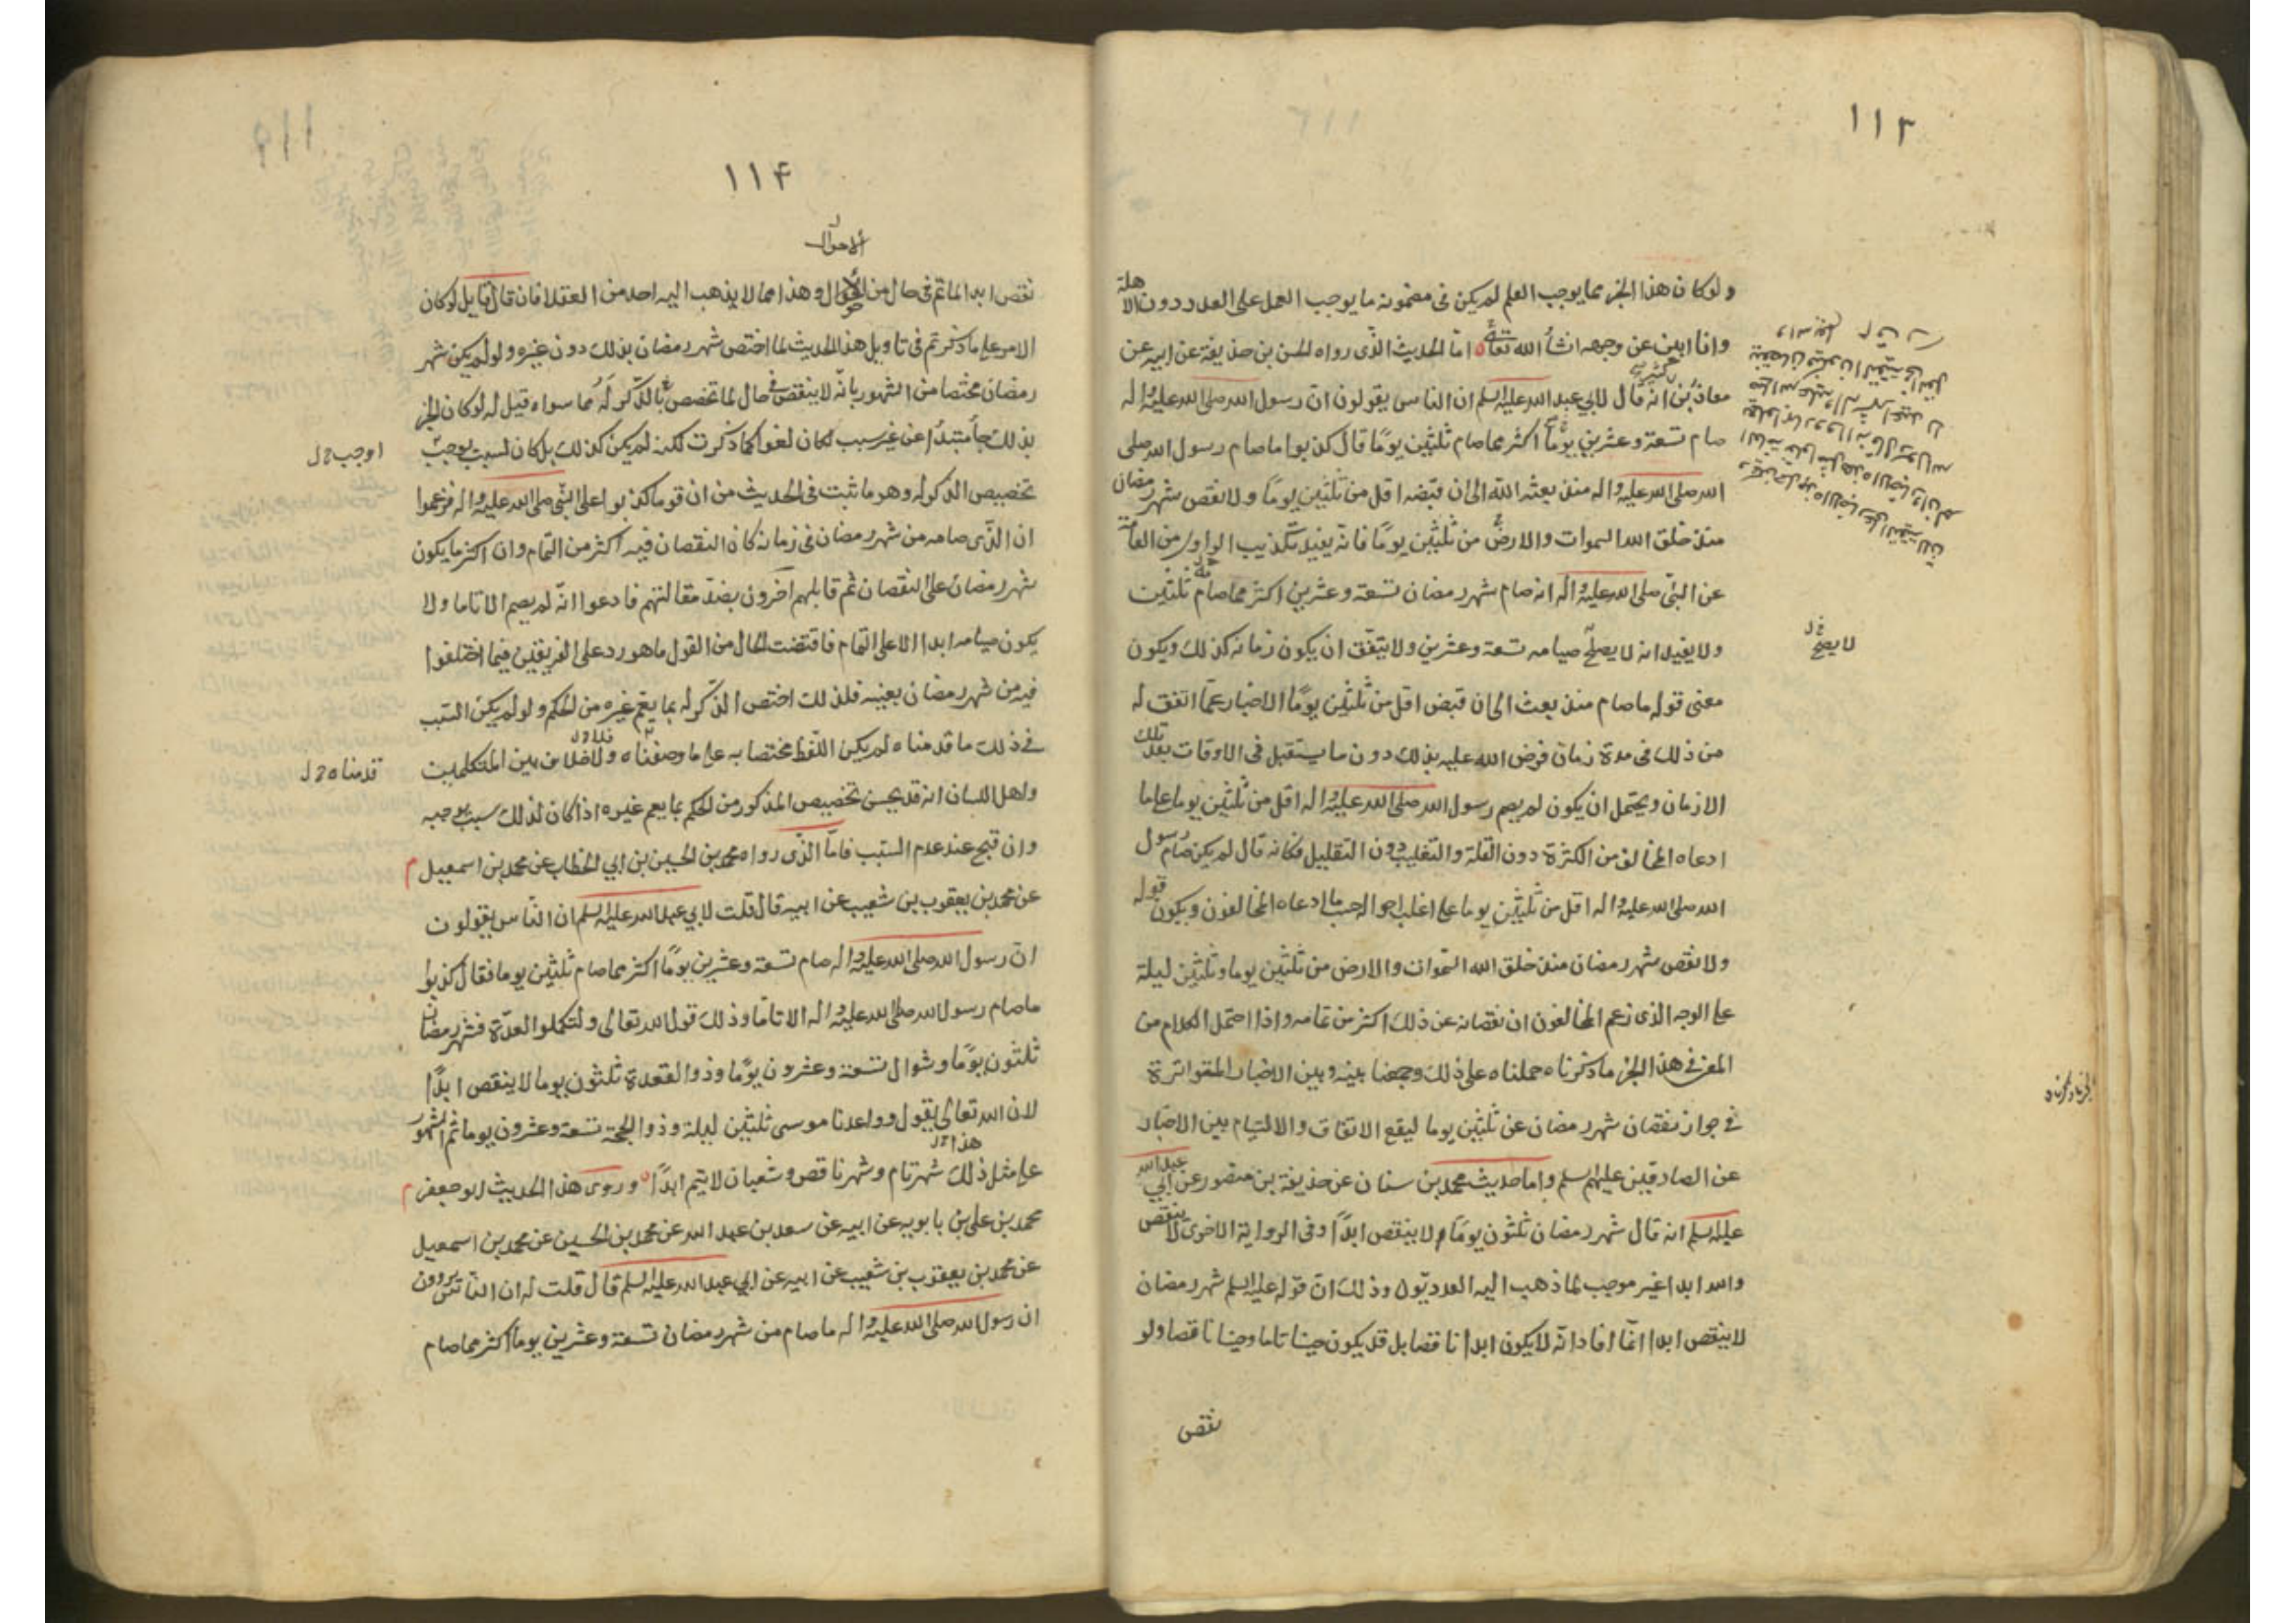 ١١٣
ولو كان هذا الخبر مما يوجب العلم لم يكن فى مضمونه ما يوجب العمل على العدد دون الاهلة
وانا ابين عن وجهه انشأ الله تعالى اما الحديث الذى رواه الحسن بن حذيفة عن ابيه عن
معاذ بن كثير انه قال لابي عبد الله عليه السلم ان الناس يقولون ان رسول الله صلى الله عليه واله
صام تسعة وعشرين يومًا اكثر مما صام ثلثين يومًا قال كذبوا ما صام رسول الله صلى
الله صلى الله عليه واله منذ بعثه الله الى ان قبضه اقل من ثلثين يومًا ولا نقص شهر رمضان
منذ خلق الله السموات والارض من ثلثين يومًا فانه يفيد تكذيب الراوى من العامة
عن النبى صلى الله عليه واله انه صام شهر رمضان تسعة وعشرين اكثر مما صام ثلثين
ولا يفيد انه لا يصلح صيامه تسعة وعشرين ولا يتفق ان يكون زمانه كذلك ويكون
لا يصح
معنى قوله ما صام منذ بعث الى ان قبض اقل من ثلثين يومًا الاخبار عما اتفق له
من ذلك فى مدة زمان فرض الله عليه بذلك دون ما يستقبل فى الاوقات بعد تلك
الازمان ويحتمل ان يكون لم يصم رسول الله صلى الله عليه واله اقل من ثلثين يوما على ما
ادعاه المخالف من الكثرة دون القلة والتغليب دون التقليل فكانه قال لم يكن صام رسول
الله صلى الله عليه واله اقل من ثلثين يوما على اغلب احواله حسب ما ادعاه المخالفون ويكون قوله
ولا نقص شهر رمضان منذ خلق الله السموات والارض من ثلثين يوما وثلثين ليلة
على الوجه الذى زعم المخالفون ان نقصانه عن ذلك اكثر من تمامه واذا احتمل الكلام من
المعنى فى هذا الخبر ما ذكرناه حملناه على ذلك وجمعنا بينه وبين الاخبار المتواترة
فى جواز نقصان شهر رمضان عن ثلثين يوما ليقع الاتفاق والالتيام بين الاخبار
عن الصادقين عليهم السلم واما حديث محمد بن سنان عن حذيفة بن منصور عن ابي عبد الله
عليه السلم انه قال شهر رمضان ثلثون يومًا لا ينقص ابدًا وفى الرواية الاخرى لا ينقص
والله ابدا غير موجب لما ذهب اليه العدديون وذلك ان قوله عليه السلم شهر رمضان
لا ينقص ابدا انما افاد انه لا يكون ابدا ناقصا بل قد يكون حينا تاما وحينا ناقصا ولو
نقص
١١٤
الاحوال
نقص ابدا لما تم فى حال من الاحوال وهذا مما لا يذهب اليه احد من العقلا فان قال قايل لو كان
الامر على ما ذكرتم فى تاويل هذا الحديث لما اختص شهر رمضان بذلك دون غيره ولو لم يكن شهر
رمضان مختصا من الشهور بانه لا ينقص فى حال لما تخصص بالذكر له مما سواه قيل له لو كان الخبر
بذلك جأ مبتدأ عن غير سبب لكان لغوا كما ذكرت لكنه لم يكن كذلك بل كان لسبب يوجب
اوجب
تخصيص الذكر له وهو ما ثبت فى الحديث من ان قوما كذبوا على النبى صلى الله عليه واله فزعموا
ان الذى صامه من شهر رمضان فى زمانه كان النقصان فيه اكثر من التمام وان اكثر ما يكون
شهر رمضان على النقصان ثم قابلهم اخرون بضد مقالتهم فادعوا انه لم يصم الا تاما ولا
يكون صيامه ابدا الا على التمام فاقتضت الحال من القول ما هو رد على الفريقين فيما اختلفوا
فيه من شهر رمضان بعينه فلذلك اختص الذكر له بما يعم غيره من الحكم ولو لم يكن السبب
فى ذلك ما قدمناه لم يكن اللفظ مختصا به على ما وصفناه ولا خلاف بين المتكلمين
قدمناه
واهل اللسان انه قد يحسن تخصيص المذكور من الحكم بما يعم غيره اذا كان لذلك سبب يوجبه
وان قبح عند عدم السبب فاما الذى رواه محمد بن الحسين بن ابي الخطاب عن محمد بن اسمعيل
عن محمد بن يعقوب بن شعيب عن ابيه قال قلت لابي عبد الله عليه السلم ان الناس يقولون
ان رسول الله صلى الله عليه واله صام تسعة وعشرين يومًا اكثر مما صام ثلثين يوما فقال كذبوا
ما صام رسول الله صلى الله عليه واله الا تاما وذلك قول الله تعالى ولتكملوا العدة فشهر رمضان
ثلثون يومًا وشوال تسعة وعشرون يومًا وذو القعدة ثلثون يوما لا ينقص ابدًا
لان الله تعالى يقول وواعدنا موسى ثلثين ليلة وذو الحجة تسعة وعشرون يوما ثم الشهور
على مثل ذلك شهر تام وشهر ناقص وشعبان لا يتم ابدًا وروى هذا الحديث ابو جعفر
محمد بن على بن بابويه عن ابيه عن سعد بن عبد الله عن محمد بن الحسين عن محمد بن اسمعيل
عن محمد بن يعقوب بن شعيب عن ابيه عن ابي عبد الله عليه السلم قال قلت له ان الناس يروون
ان رسول الله صلى الله عليه واله ما صام من شهر رمضان تسعة وعشرين يوما اكثر مما صام